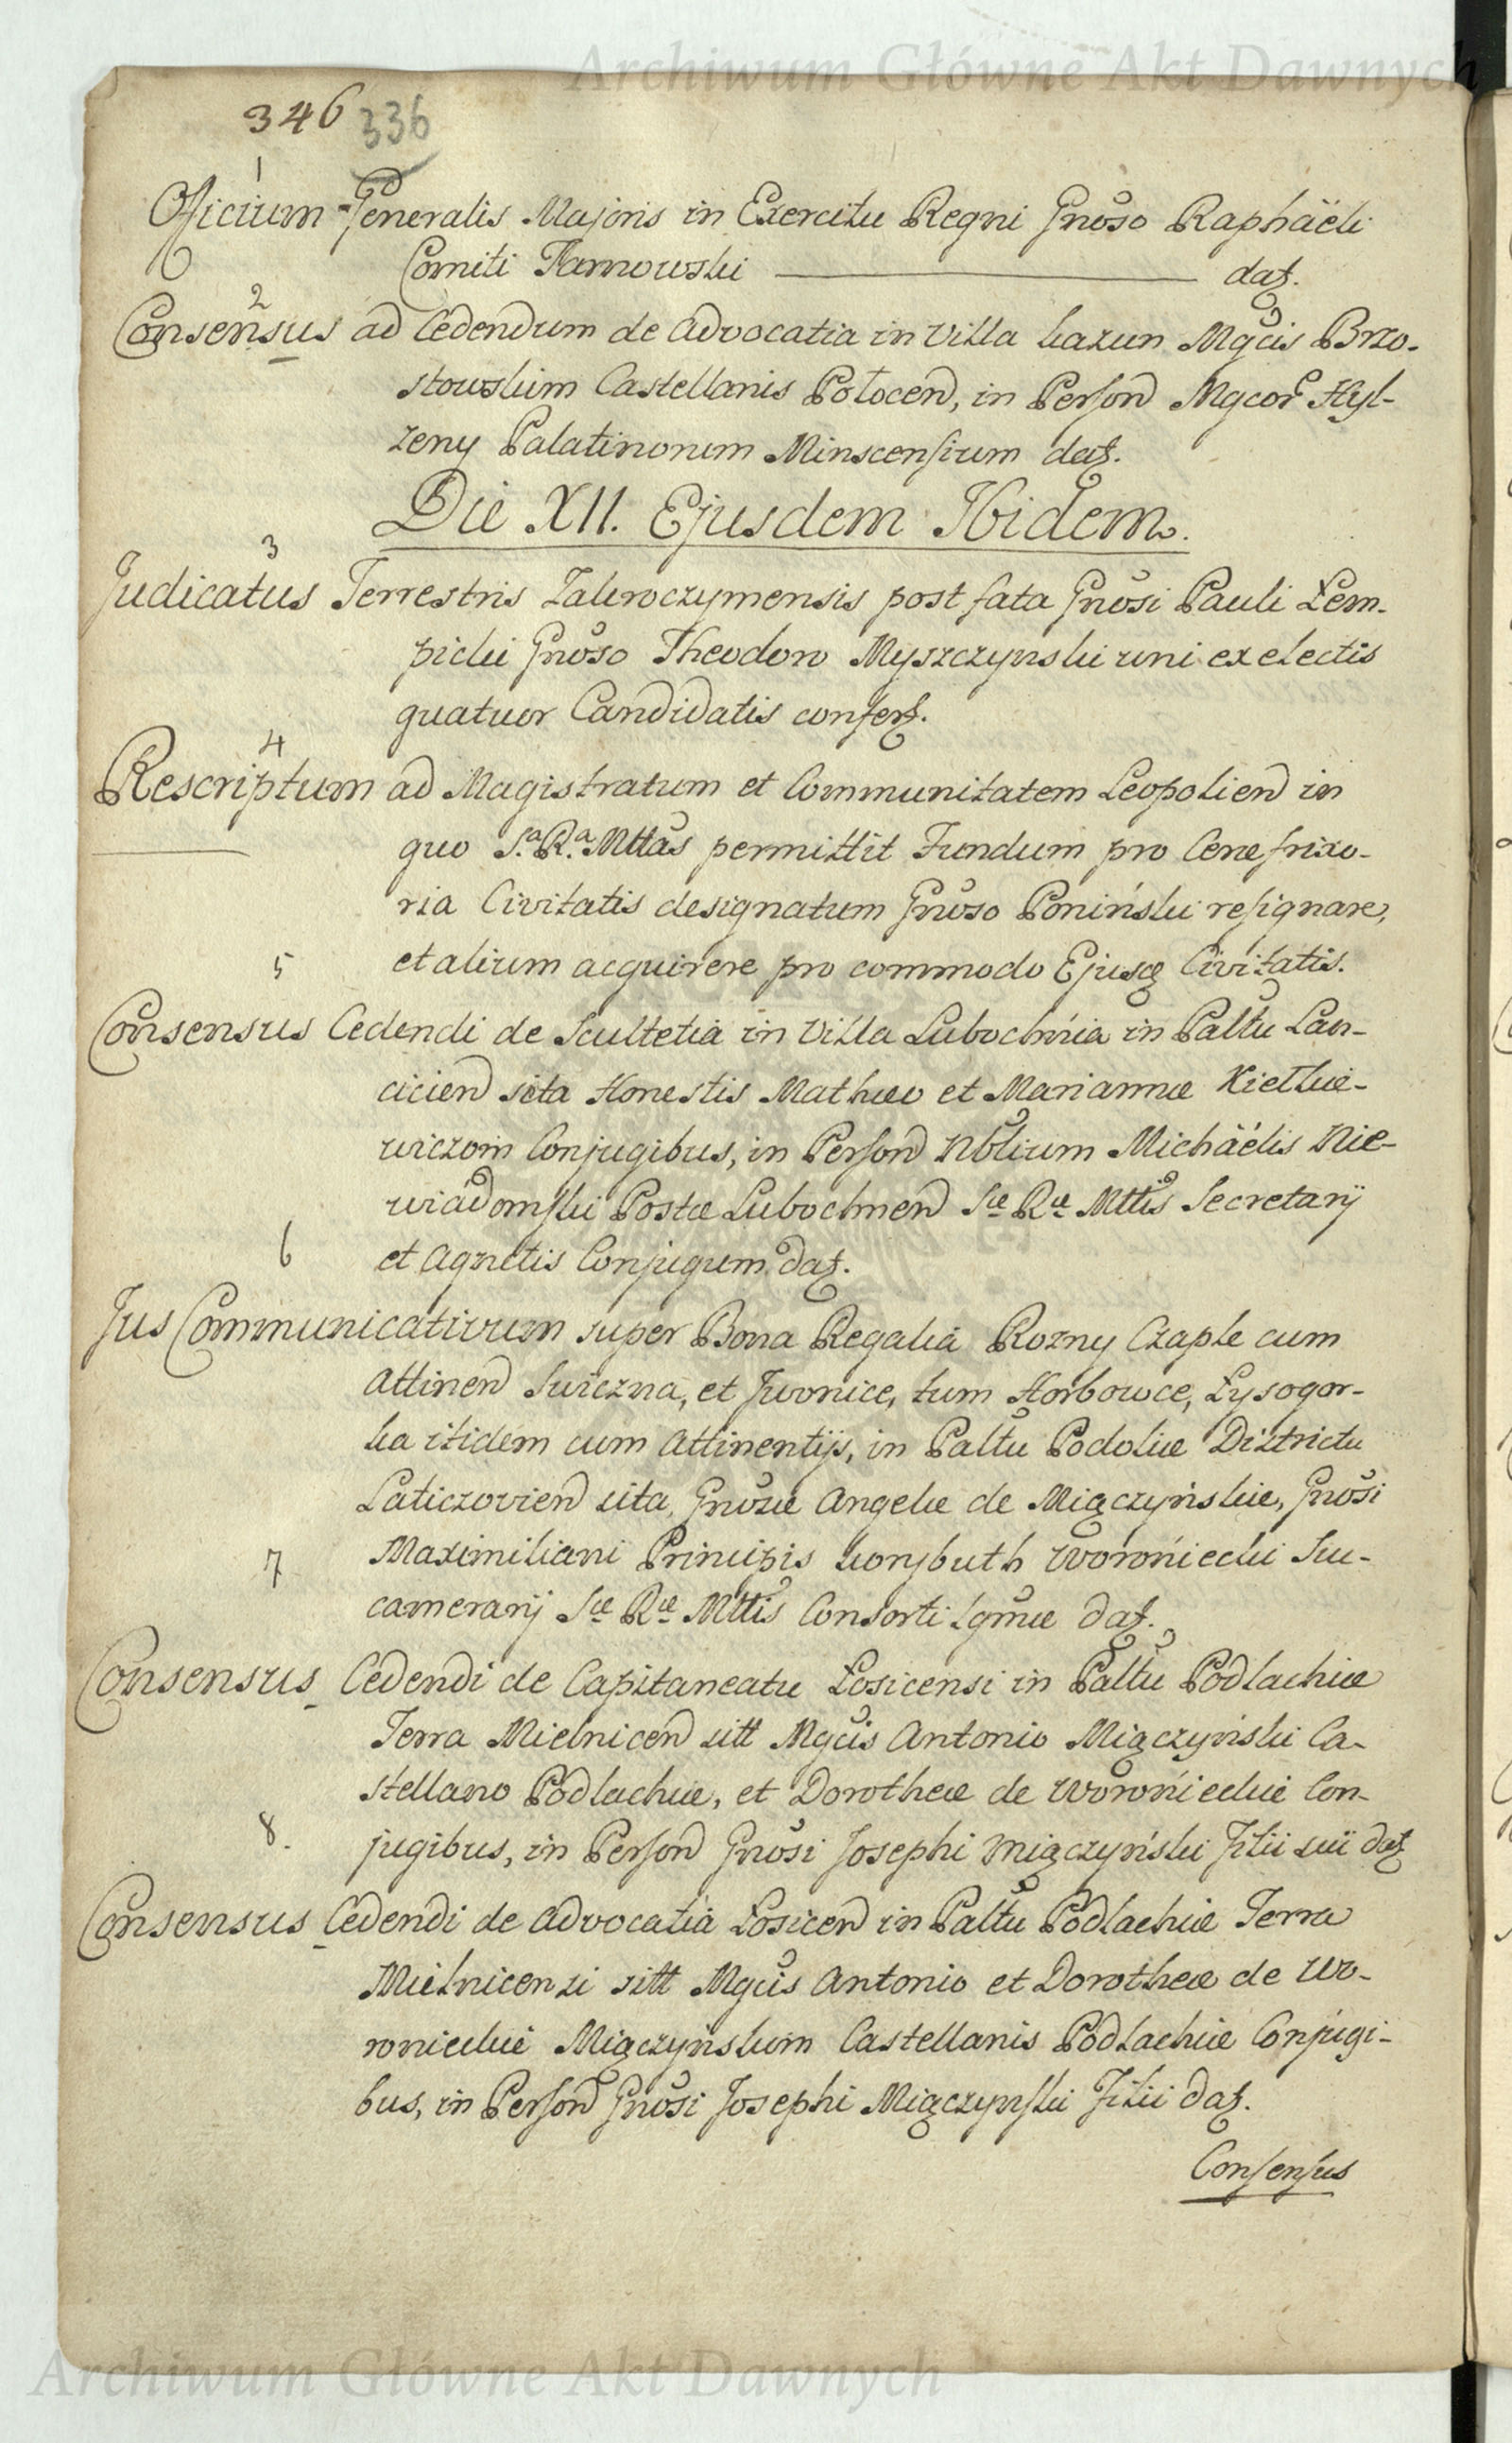 Archiwum Główne Akt Dawnych
346 336
1
Officium Generalis Majoris in Exercitu Regni Gnoso Raphaëli
Comiti Tarnowski dat.
2
Consensus ad Cedendum de Advocatia in Villa Kazun Mgcis Brzo-
stowskim Castellanis Połocen, in Person Mgcor Hyl-
zeny Palatinorum Minscensium dat.
Die XII. Ejusdem Ibidem.
3
Judicatus Terrestris Zakroczymensis post fata Gnosi Pauli Łem-
picki Gnoso Theodoro Myszczynski uni ex electis
quatuor Candidatis confert.
4
Rescriptum ad Magistratum et Communitatem Leopolien in
quo S.a R.a Mttas permittit Fundum pro Cerefrixo-
ria Civitatis designatum Gnoso Poniński resignare,
et alium acquirere pro commodo Ejusq Civitatis.
5
Consensus Cedendi de Scultetia in Villa Lubochnia in Paltu Lan-
cicien sita Honestis Mathæo et Mariannæ Kietlie-
wiczom Conjugibus, in Person Nblium Michaëlis Nie-
wiadomski Postæ Lubochnen Sæ Ræ Mttis Secretarij
et Agnetis Conjugum dat.
6
Jus Communicativum super Bona Regalia Rozny Czaple cum
Attinen Swiczna, et Jwonice, tum Horbowce, Łysogor-
ka itidem cum Attinentijs, in Paltu Podoliæ Districtu
Laticzovien sita, Gnosæ Angelæ de Miączyńskie, Gnosi
Maximiliani Principis Korybuth Woroniecki Suc-
7
camerarij Sæ Ræ Mttis Consorti Lgmæ dat.
Consensus Cedendi de Capitaneatu Łosicensi in Paltu Podlachiæ
Terra Mielnicen sitt Mgcis Antonio Miączyński Ca-
stellano Podlachiæ, et Dorotheæ de Woronieckie Con-
8.
jugibus, in Person Gnosi Josephi Miączyński Filii sui dat
Consensus Cedendi de Advocatia Łosicen in Paltu Podlachiæ Terra
Mielnicensi sitt Mgcis Antonio et Dorotheæ de Wo-
ronieckie Miączynskim Castellanis Podlachiæ Conjugi-
bus, in Person Gnosi Josephi Miączynski Filii dat.
Consensus
Archiwum Główne Akt Dawnych